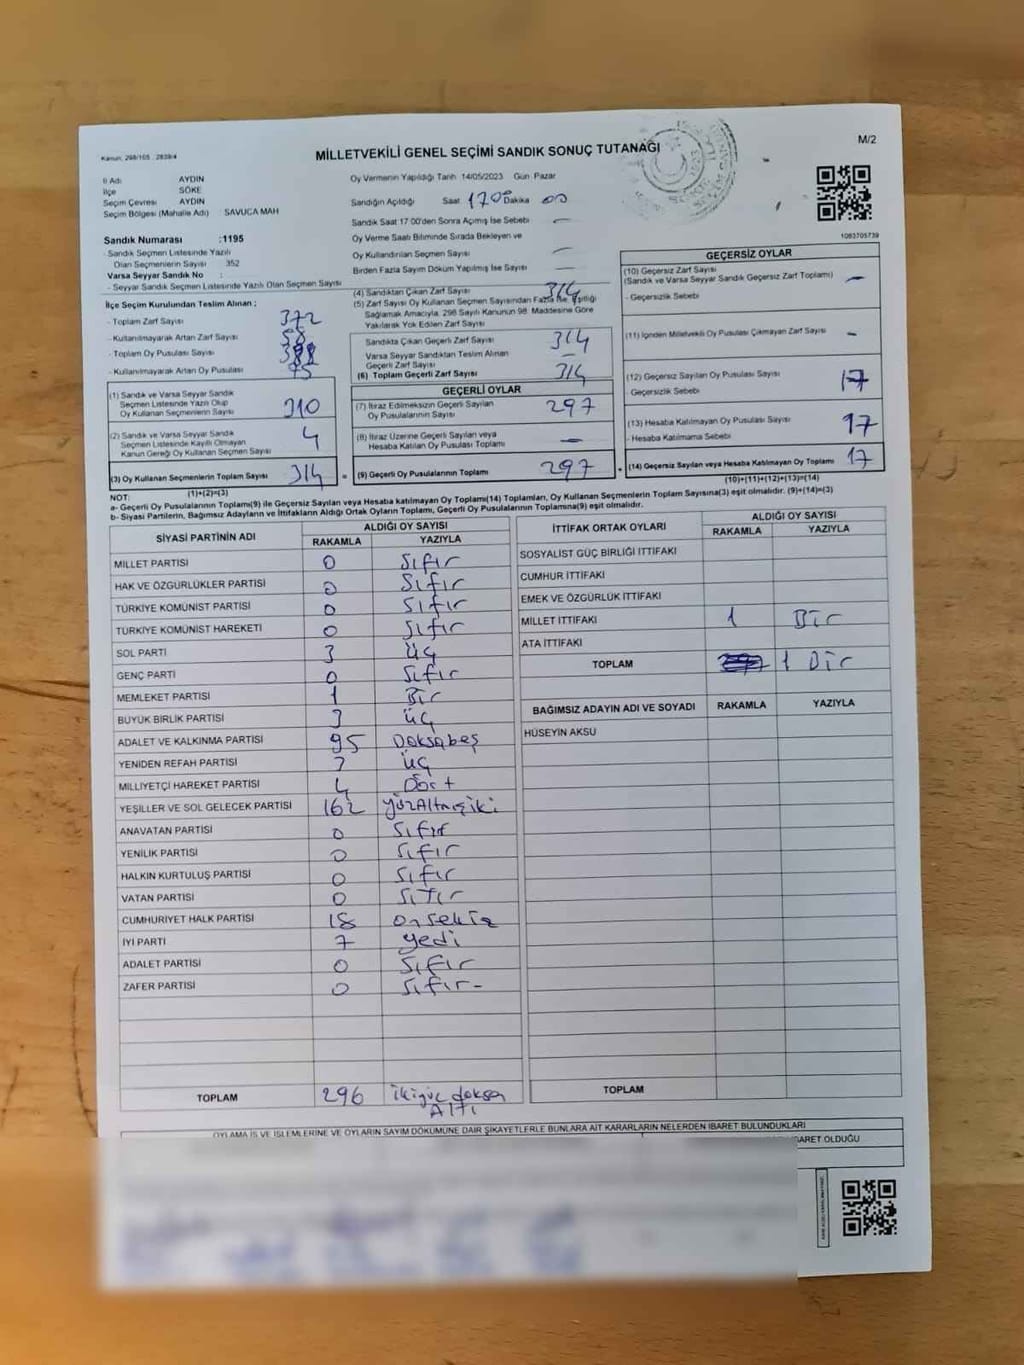 Kanun, 298/105 : 2839/4
MİLLETVEKİLİ GENEL SEÇİMİ SANDIK SONUÇ TUTANAĞI
M/2
İl Adı AYDIN
İlçe SÖKE
Seçim Çevresi AYDIN
Seçim Bölgesi (Mahalle Adı) : SAVUCA MAH
Oy Vermenin Yapıldığı Tarih 14/05/2023 Gün Pazar
Sandığın Açıldığı Saat 17 00 Dakika 00
Sandık Saat 17:00'den Sonra Açılmış İse Sebebi —
Oy Verme Saati Bitiminde Sırada Bekleyen ve
Oy Kullandırılan Seçmen Sayısı —
Birden Fazla Sayım Döküm Yapılmış İse Sayısı —
1083705739
Sandık Numarası :1195
- Sandık Seçmen Listesinde Yazılı
Olan Seçmenlerin Sayısı : 352
Varsa Seyyar Sandık No :
- Seyyar Sandık Seçmen Listesinde Yazılı Olan Seçmen Sayısı
İlçe Seçim Kurulundan Teslim Alınan ;
- Toplam Zarf Sayısı 372
- Kullanılmayarak Artan Zarf Sayısı 58
- Toplam Oy Pusulası Sayısı
- Kullanılmayarak Artan Oy Pusulası
(1) Sandık ve Varsa Seyyar Sandık
Seçmen Listesinde Yazılı Olup
Oy Kullanan Seçmenlerin Sayısı 310
(2) Sandık ve Varsa Seyyar Sandık
Seçmen Listesinde Kayıtlı Olmayan
Kanun Gereği Oy Kullanan Seçmen Sayısı 4
(3) Oy Kullanan Seçmenlerin Toplam Sayısı 314 =
(1)+(2)=(3)
(4) Sandıktan Çıkan Zarf Sayısı 314
(5) Zarf Sayısı Oy Kullanan Seçmen Sayısından Fazla İse, Eşitliği
Sağlamak Amacıyla, 298 Sayılı Kanunun 98. Maddesine Göre
Yakılarak Yok Edilen Zarf Sayısı
Sandıkta Çıkan Geçerli Zarf Sayısı 314
Varsa Seyyar Sandıktan Teslim Alınan
Geçerli Zarf Sayısı —
(6) Toplam Geçerli Zarf Sayısı 314
GEÇERLİ OYLAR
(7) İtiraz Edilmeksizin Geçerli Sayılan
Oy Pusulalarının Sayısı 297
(8) İtiraz Üzerine Geçerli Sayılan veya
Hesaba Katılan Oy Pusulası Toplamı —
(9) Geçerli Oy Pusulalarının Toplamı 297 +
GEÇERSİZ OYLAR
(10) Geçersiz Zarf Sayısı
(Sandık ve Varsa Seyyar Sandık Geçersiz Zarf Toplamı) —
- Geçersizlik Sebebi
(11) İçinden Milletvekili Oy Pusulası Çıkmayan Zarf Sayısı —
(12) Geçersiz Sayılan Oy Pusulası Sayısı 17
Geçersizlik Sebebi
(13) Hesaba Katılmayan Oy Pusulası Sayısı 17
- Hesaba Katılmama Sebebi
(14) Geçersiz Sayılan veya Hesaba Katılmayan Oy Toplamı 17
(10)+(11)+(12)+(13)=(14)
NOT:
a- Geçerli Oy Pusulalarının Toplamı(9) ile Geçersiz Sayılan veya Hesaba katılmayan Oy Toplamı(14) Toplamları, Oy Kullanan Seçmenlerin Toplam Sayısına(3) eşit olmalıdır. (9)+(14)=(3)
b- Siyasi Partilerin, Bağımsız Adayların ve İttifakların Aldığı Ortak Oyların Toplamı, Geçerli Oy Pusulalarının Toplamına(9) eşit olmalıdır.
SİYASİ PARTİNİN ADI ALDIĞI OY SAYISI
RAKAMLA YAZIYLA
MİLLET PARTİSİ 0 Sıfır
HAK VE ÖZGÜRLÜKLER PARTİSİ 0 Sıfır
TÜRKİYE KOMÜNİST PARTİSİ 0 Sıfır
TÜRKİYE KOMÜNİST HAREKETİ 0 Sıfır
SOL PARTİ 3 üç
GENÇ PARTİ 0 Sıfır
MEMLEKET PARTİSİ 1 Bir
BÜYÜK BİRLİK PARTİSİ 3 üç
ADALET VE KALKINMA PARTİSİ 95 Doksabeş
YENİDEN REFAH PARTİSİ 3 üç
MİLLİYETÇİ HAREKET PARTİSİ 4 Dört
YEŞİLLER VE SOL GELECEK PARTİSİ 162 yüzAltmışiki
ANAVATAN PARTİSİ 0 Sıfır
YENİLİK PARTİSİ 0 Sıfır
HALKIN KURTULUŞ PARTİSİ 0 Sıfır
VATAN PARTİSİ 0 Sıfır
CUMHURİYET HALK PARTİSİ 18 onsekiz
İYİ PARTİ 7 yedi
ADALET PARTİSİ 0 Sıfır
ZAFER PARTİSİ 0 Sıfır-
TOPLAM 296 ikiyüz doksan
Altı
İTTİFAK ORTAK OYLARI ALDIĞI OY SAYISI
RAKAMLA YAZIYLA
SOSYALİST GÜÇ BİRLİĞİ İTTİFAKI
CUMHUR İTTİFAKI
EMEK VE ÖZGÜRLÜK İTTİFAKI
MİLLET İTTİFAKI 1 Bir
ATA İTTİFAKI
TOPLAM 1 Bir
BAĞIMSIZ ADAYIN ADI VE SOYADI RAKAMLA YAZIYLA
HÜSEYİN AKSU
TOPLAM
OYLAMA İŞ VE İŞLEMLERİNE VE OYLARIN SAYIM DÖKÜMÜNE DAİR ŞİKAYETLERLE BUNLARA AİT KARARLARIN NELERDEN İBARET BULUNDUKLARI
İBARET OLDUĞU